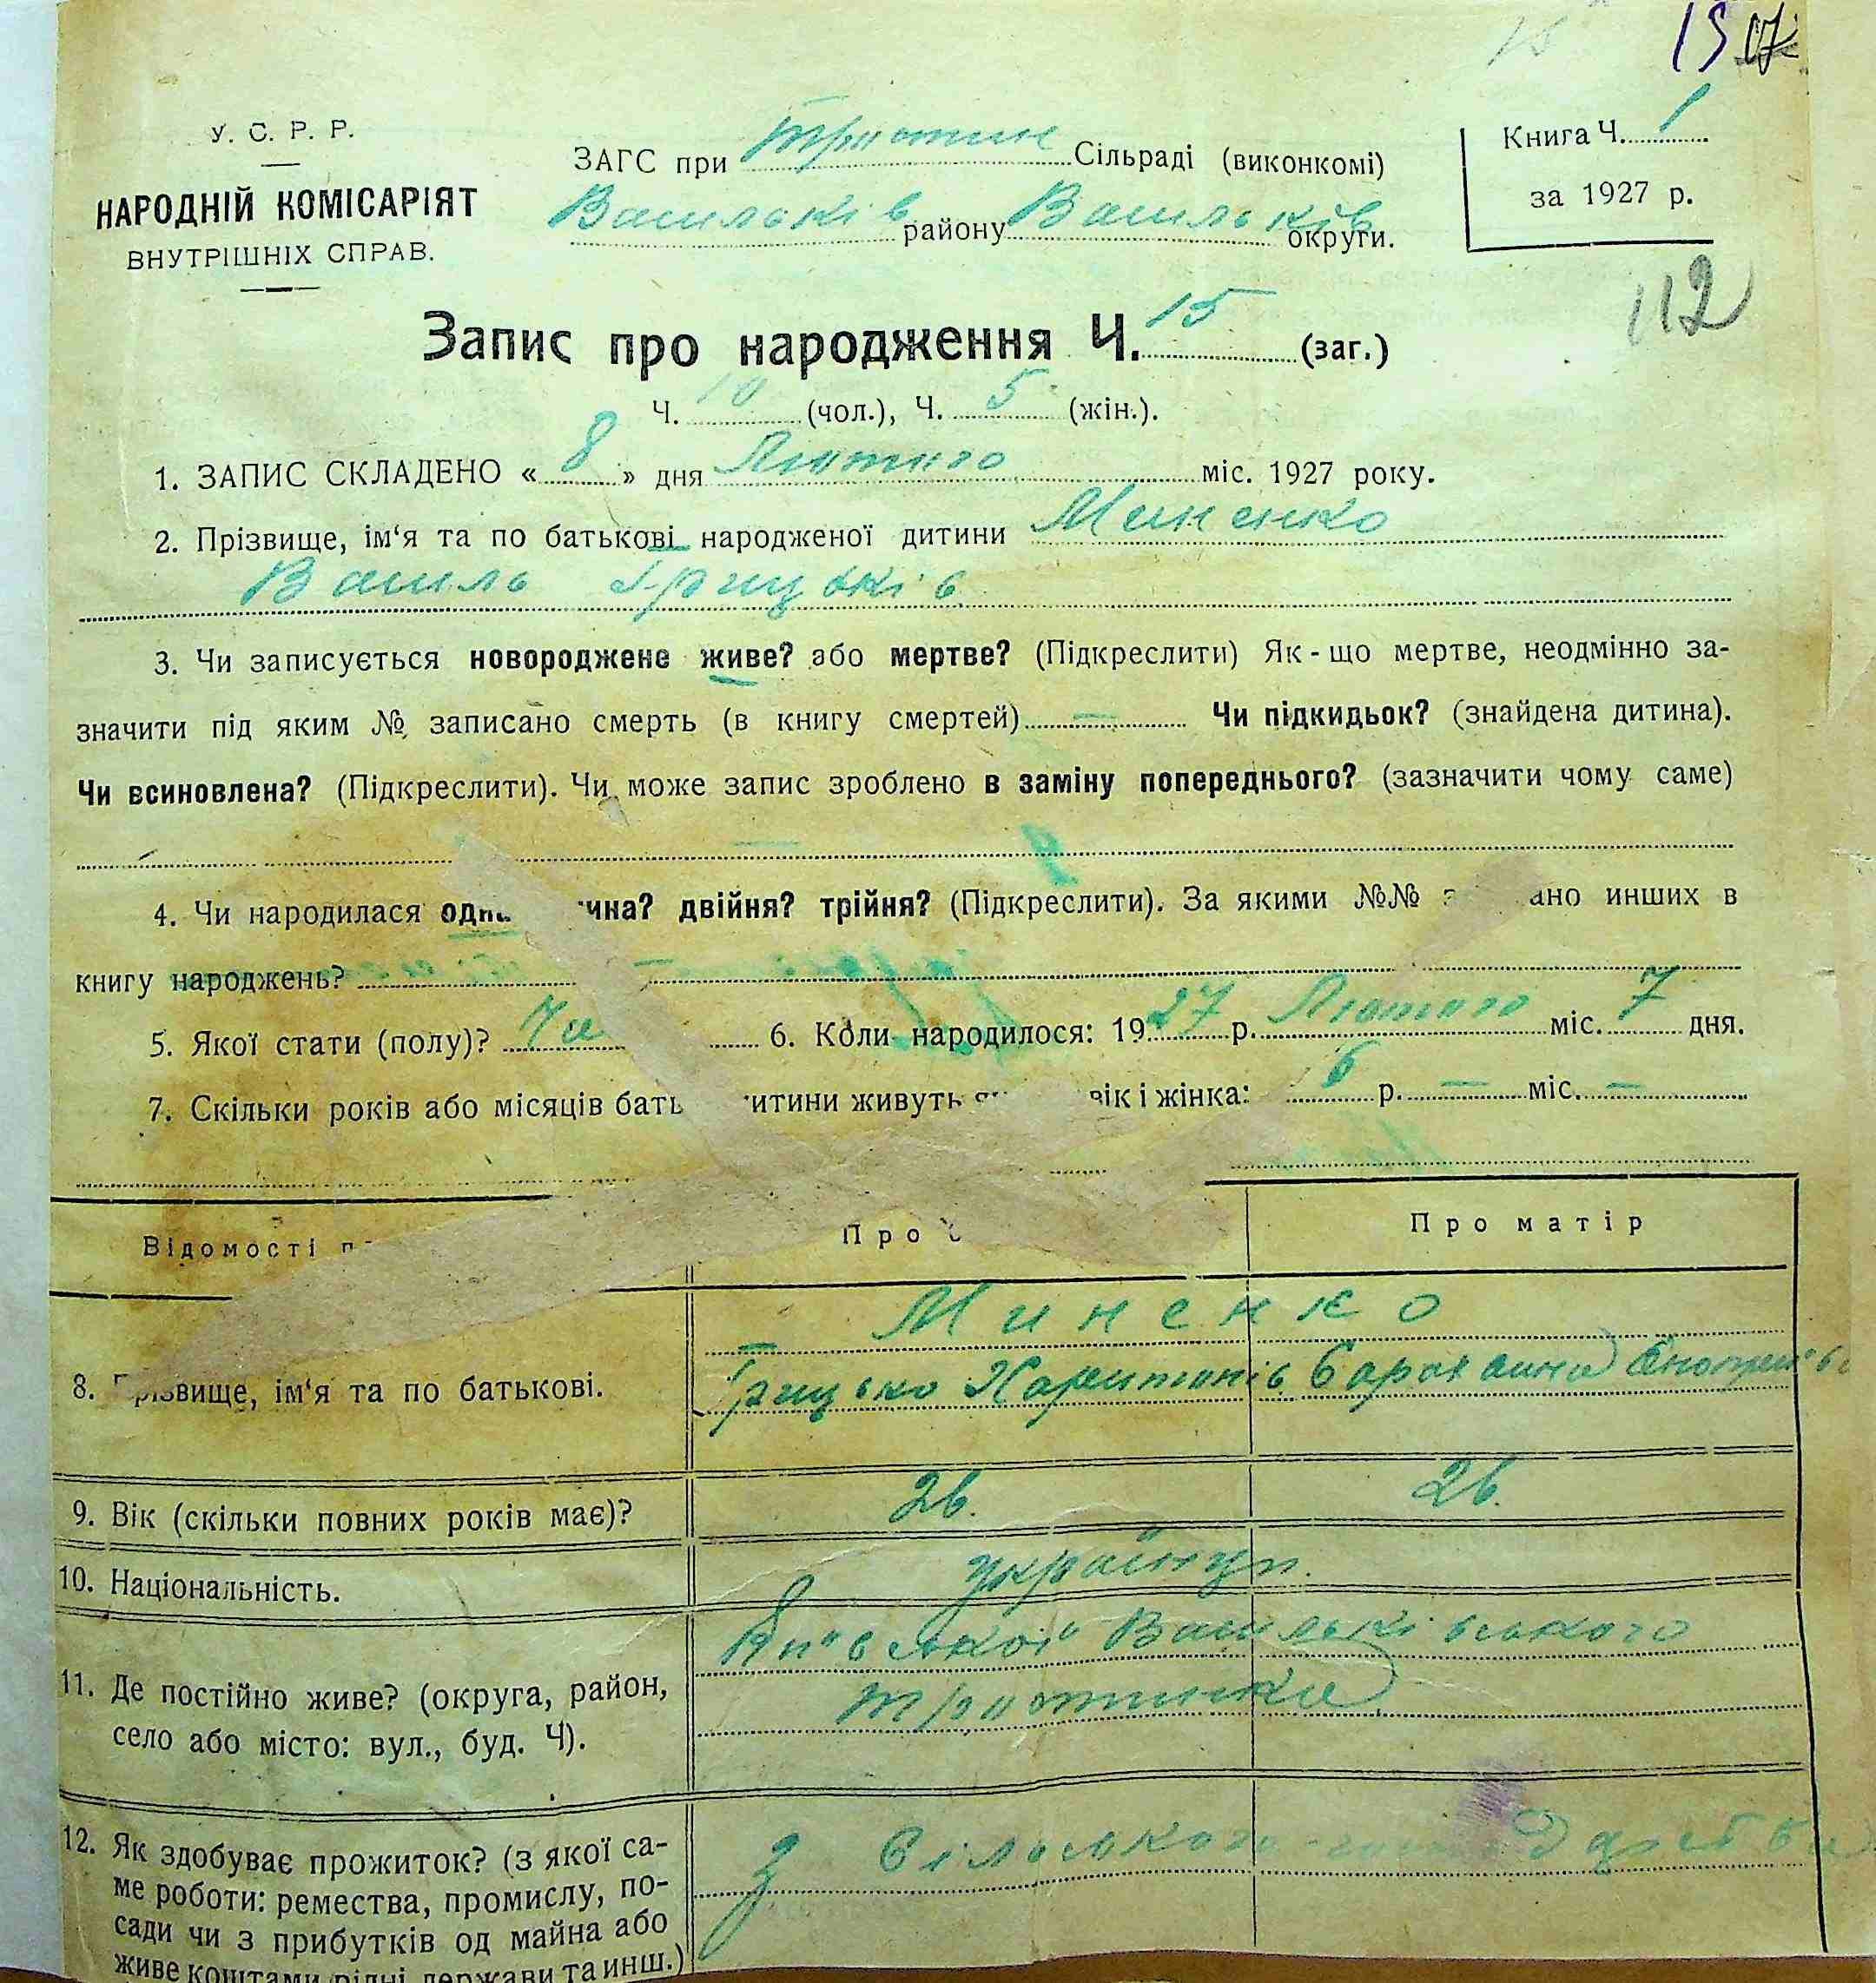 15 17
У. С. Р. Р.
НАРОДНІЙ КОМІСАРІЯТ
ВНУТРІШНІХ СПРАВ.
ЗАГС при Сільраді (виконкомі)
Васильків району Васильків округи.
Книга Ч. 1
за 1927 р.
112
Запис про народження Ч. 15 (заг.)
Ч. 10 (чол.), Ч. 5 (жін.).
1. ЗАПИС СКЛАДЕНО «8» дня Лютого міс. 1927 року.
2. Прізвище, ім'я та по батькові народженої дитини Миненко
Василь Грицьків
3. Чи записується новороджене живе? або мертве? (Підкреслити) Як-що мертве, неодмінно за-
значити під яким № записано смерть (в книгу смертей) — Чи підкидьок? (знайдена дитина).
Чи всиновлена? (Підкреслити). Чи може запис зроблено в заміну попереднього? (зазначити чому саме)
4. Чи народилася двійня? трійня? (Підкреслити). За якими №№ инших в
книгу народжень? —
5. Якої стати (полу)? 6. Коли народилося: 1927 р. Лютого міс. 7 дня.
7. Скільки років або місяців живуть і жінка: 6 р. — міс. —
Відомості Про Про матір
Миненко
8. Прізвище, ім'я та по батькові. Грицько Харитонів
9. Вік (скільки повних років має)? 26. 26.
10. Національність. українці.
Васильківського
11. Де постійно живе? (округа, район,
село або місто: вул., буд. Ч).
12. Як здобуває прожиток? (з якої са- з сільського
ме роботи: ремества, промислу, по-
сади чи з прибутків од майна або
живе коштами рідні, держави та инш.)